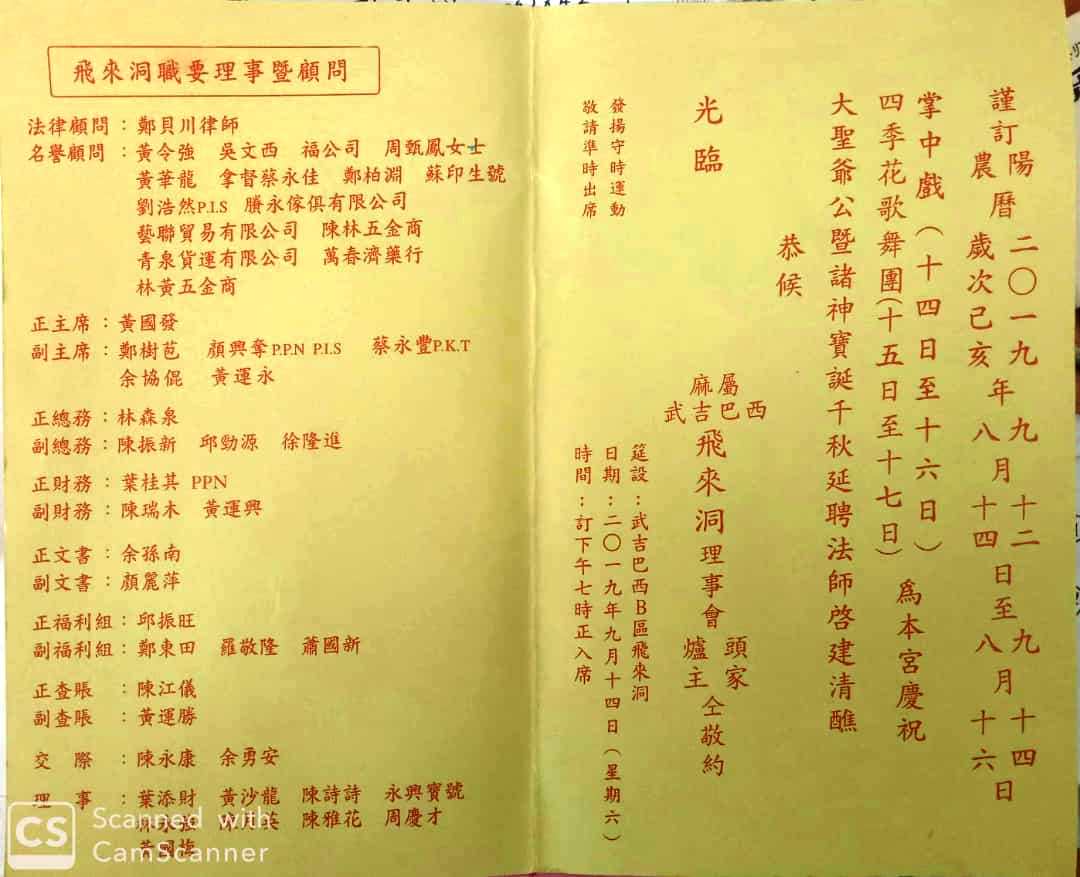 飛來洞職要理事暨顧問
法律顧問：鄭貝川律師
名譽顧問：黃令強 吳文西 福公司 周甄鳳女士
黃華龍 拿督蔡永佳 鄭柏淵 蘇印生號
劉浩然P.I.S 勝永傢俱有限公司
藝聯貿易有限公司 陳林五金商
青泉貨運有限公司 萬春濟藥行
林黃五金商
正主席：黃國發
副主席：鄭樹芭 顏興奪P.P.N P.I.S 蔡永豐P.K.T
余協倱 黃運永
正總務：林森泉
副總務：陳振新 邱勁源 徐隆進
正財務：葉桂其 PPN
副財務：陳瑞木 黃運興
正文書：余孫南
副文書：顏麗萍
正福利組：邱振旺
副福利組：鄭東田 羅敬隆 蕭國新
正查賬：陳江儀
副查賬：黃運勝
交際：陳永康 余勇安
理事：葉添財 黃沙龍 陳詩詩 永興寶號
陳雅花 周慶才
CS Scanned with
CamScanner
謹訂陽曆二〇一九年九月十二日至九月十四日
農曆歲次己亥年八月十四日至八月十六日
掌中戲（十四日至十六日）
四季花歌舞團（十五日至十七日）為本宮慶祝
大聖爺公暨諸神寶誕千秋延聘法師啓建清醮
恭候
光臨
麻屬
武吉巴西
飛來洞理事會 頭家
爐主 仝敬約
發揚守時運動
敬請準時出席
筵設：武吉巴西B區飛來洞
日期：二〇一九年九月十四日（星期六）
時間：訂下午七時正入席